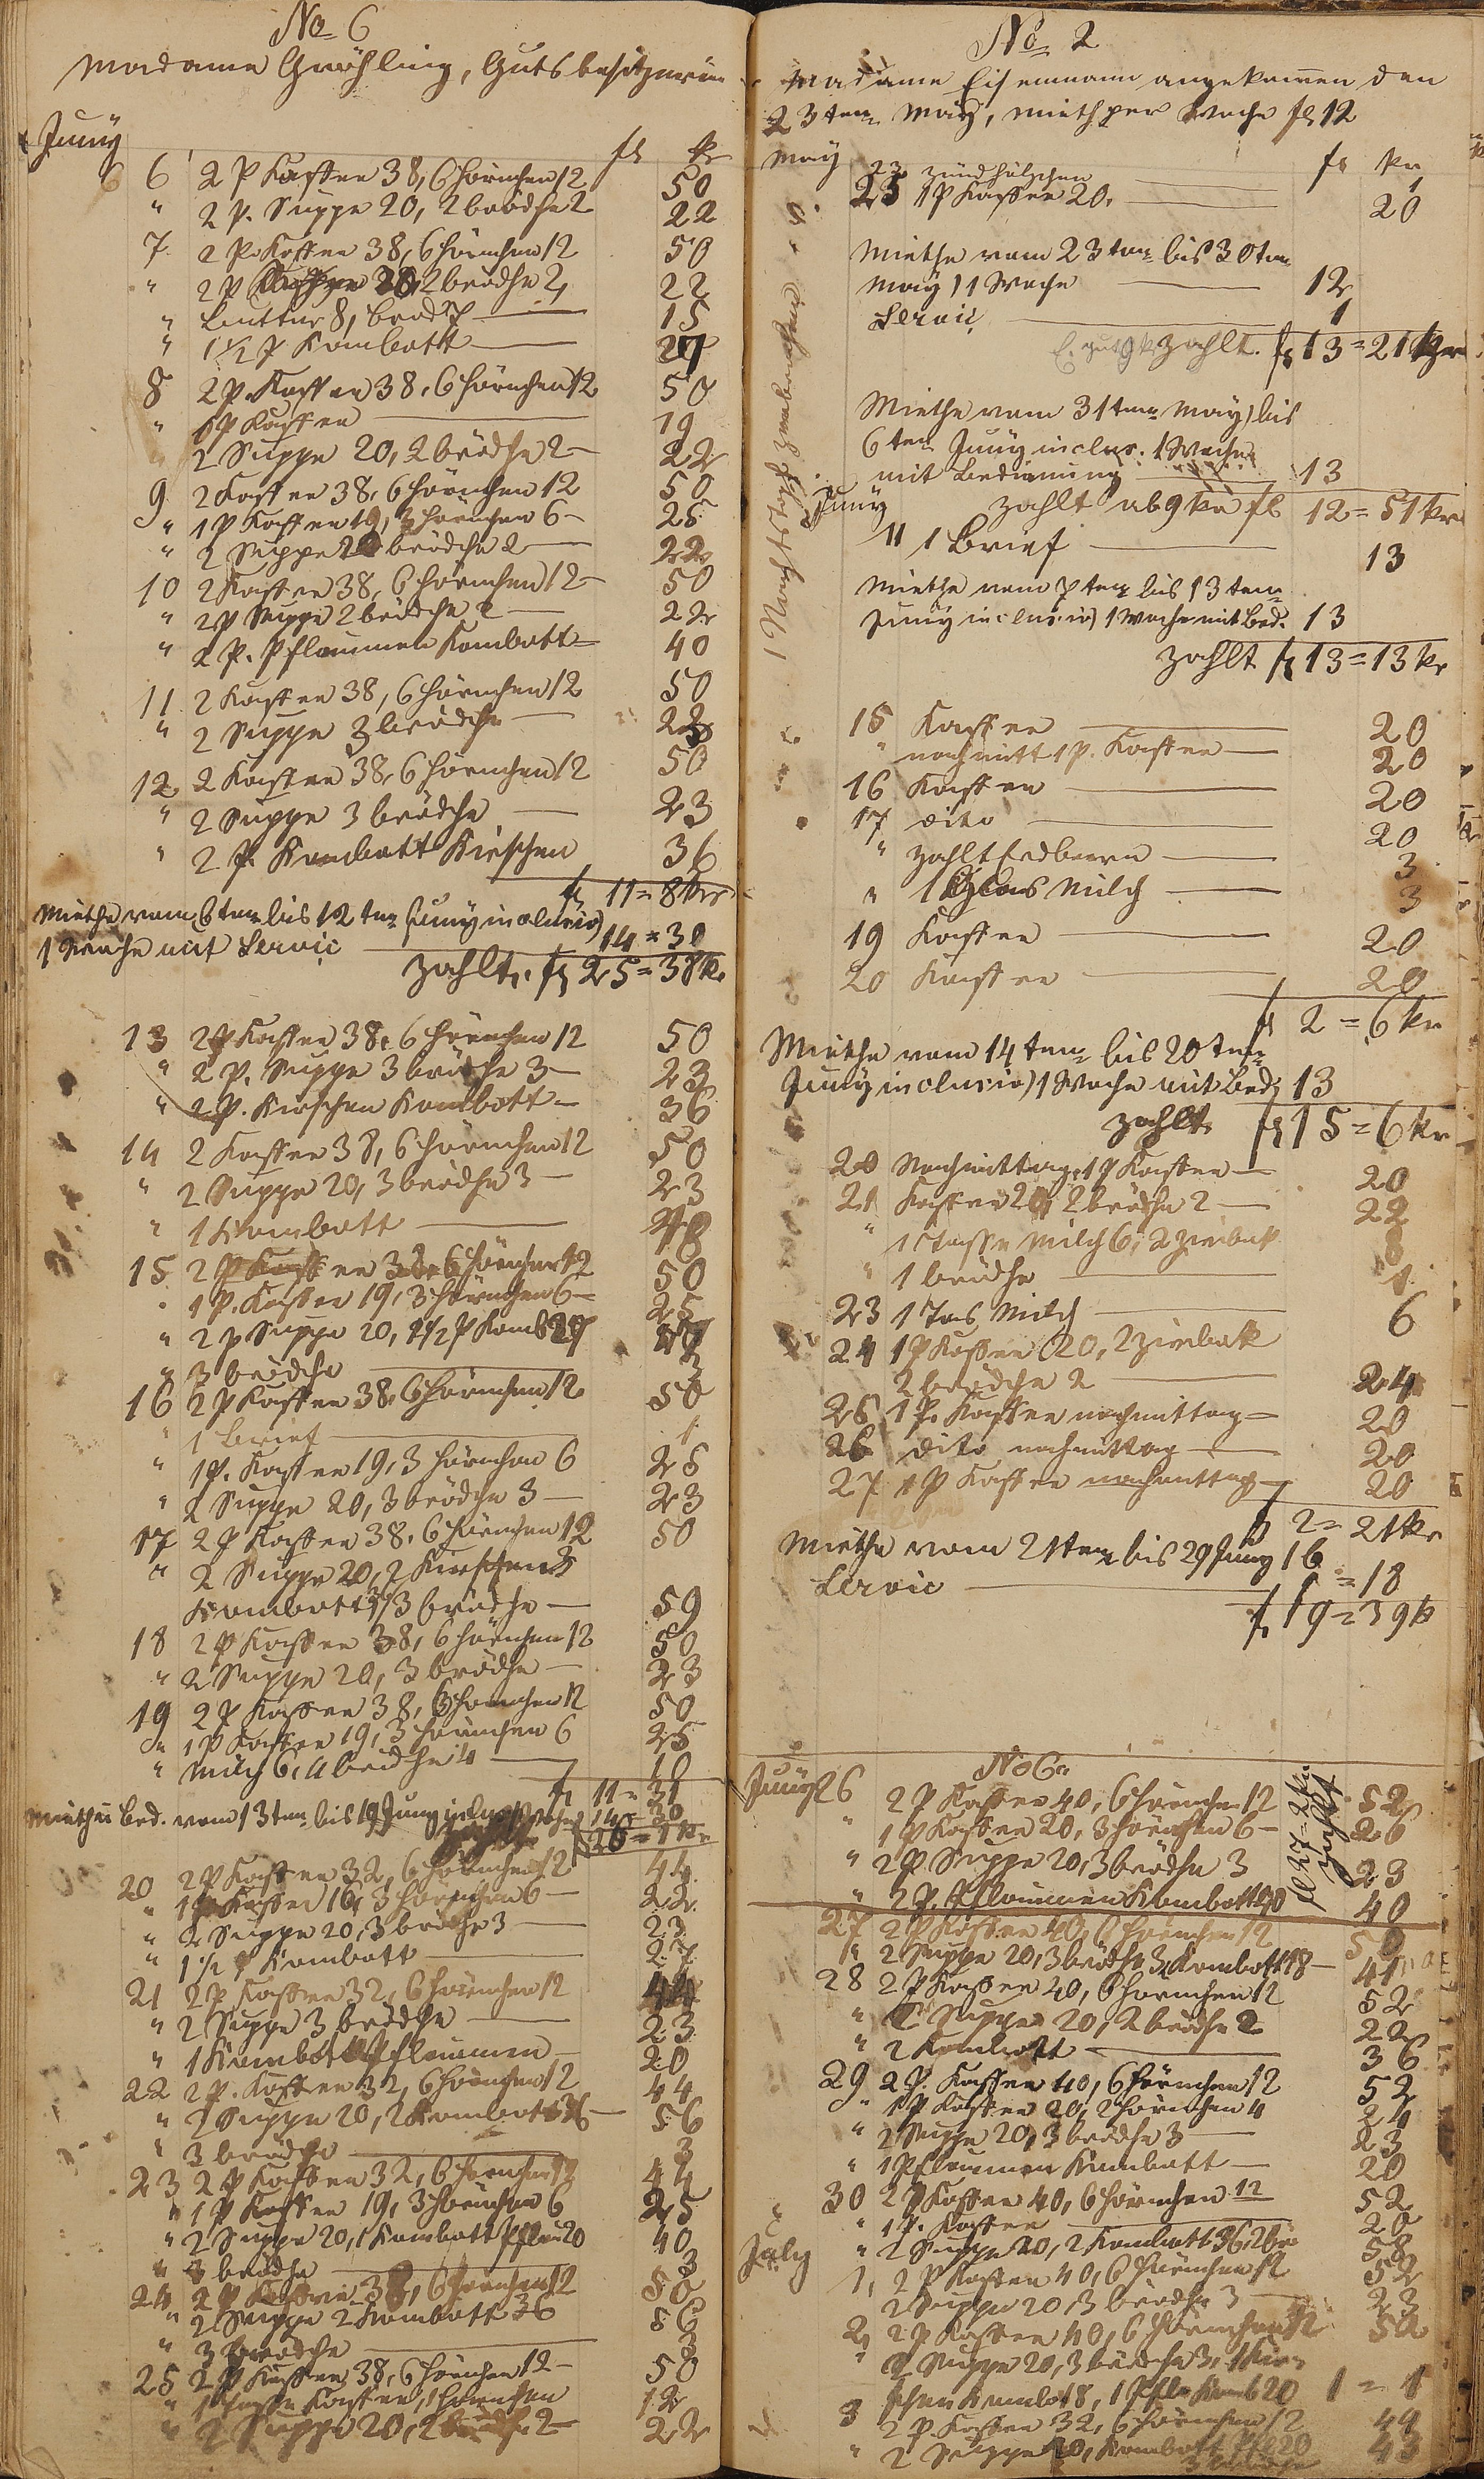 No 6
Madame Gröhling, Gutsbesitzerin
Juny
fl kr
6 6 2 P Kaffee 38, 6 Hörnchen 12 50
" 2 P. Suppe 20, 2 brödche 2 22
7 2 P. Kaffee 38, 6 Hörnchen 12 50
" 2 P Suppe 20, 2 brödche 2, 22
" Butter 8, brod 7 15
" 1 1/2 P Kombott 27
8 2 P. Kaffee 38, 6 Hörnchen 12 50
" 1 P Kaffee 19
2 Suppe 20, 2 brödche 2 22
9 2 Kaffee 38, 6 Hörnchen 12 50
" 1 P Kaffee 19, 3 Hörnchen 6 25
" 2 Suppe 20 brödche 2 22
10 2 Kaffee 38, 6 Hörnchen 12 50
" 2 P Suppe 2 brödche 2 22
" 2 P. Pflaumen Kombott 40
11 2 Kaffee 38, 6 Hörnchen 12 50
" 2 Suppe 3 brödche 23
12 2 Kaffee 38, 6 Hörnchen 12 50
" 2 Suppe 3 brödche 23
" 2 P. Kombott Kirschen 36
fl 11 = 8 kr
Miethe vom 6ten bis 12ten Juny inclusiv)
1 Woche mit Servic 14 = 30
zahlt. fl 25 = 38 kr
13 2 P Kaffee 38, 6 Hörnchen 12 50
" 2 P. Suppe 3 brödche 3 23
" 2 P. Kirschen Kombott 36
14 2 Kaffee 38, 6 Hörnchen 12 50
" 2 Suppe 20, 3 brödche 3 23
" 1 Kombott 18
15 2 P Kaffee 38, 6 Hörnchen 12 50
" 1 P. Kaffee 19, 3 Hörnchen 6 25
" 2 P Suppe 20, 1 1/2 P Komb 27 47
" 3 brödche 3
16 2 P Kaffee 38, 6 Hörnchen 12 50
" 1 Brief 1
" 1 P. Kaffee 19, 3 Hörnchen 6 25
" 2 Suppe 20, 3 brödche 3 23
17 2 P Kaffee 38, 6 Hörnchen 12 50
" 2 Suppe 20, 2 Kirschen
Kombott 3 brödche 59
18 2 P Kaffee 38, 6 Hörnchen 12 50
" 2 Suppe 20, 3 brödche 23
19 2 P Kaffee 38, 6 Hörnchen 12 50
" 1 P Kaffee 19, 3 Hörnchen 6 25
" Milch 6, 4 brödche 4 10
fl 11 = 31
Miethe Bed. vom 13ten bis 19 Juny 14 = 30
26 = 1 kr
20 2 P Kaffee 32, 6 Hörnchen 12 44
" 1 P Kaffee 16, 3 Hörnchen 6 22
" 2 Suppe 20, 3 brödche 3 23
" 1 1/2 P Kombott 27
21 2 P Kaffee 32, 6 Hörnchen 12 44
" 2 Suppe 3 brödche 23
" 1 Kombott Pflaumen 20
22 2 P. Kaffee 32, 6 Hörnchen 12 44
" 2 Suppe 20, 2 Kombott 36 56
" 3 brödche 3
23 2 P Kaffee 32, 6 Hörnchen 12 44
" 1 P Kaffee 19, 3 Hörnchen 6 25
" 2 Suppe 20, 1 Kombott Pflau 20 40
" 3 brödche 3
24 2 P Kaffee 38, 6 Hörnchen 12 50
" 2 Suppe 2 Kombott 36 56
" 3 brödche 3
25 2 P Kaffee 38, 6 Hörnchen 12 50
" 1 Kaffee, 1 Hörnchen 12
" 2 Suppe 20, 2 brödche 2 22
No 2
Madame Eisenmann angekommen den
23ten May, Mieth per Woche fl 12
May fl kr
23 Zündhölzchen 1
25 1 P Kaffee 20. 20
Miethe vom 23ten bis 30ten
May) 1 Woche 12
Servic 1
zahlt. fl 13 = 21 kr
Miethe vom 31ten May) bis
6ten Juny inclus. 1 Woche
mit Bedienung 13
Juny zahlt ab 9 kr fl 12 = 51 kr
11 1 Brief 13
Miethe vom 7ten bis 13ten
Juny inclusiv) 1 Woche mit Bed. 13
zahlt fl 13 = 13 kr
15 Kaffee 20
" nachmitt 1 P. Kaffee 20
16 Kaffee 20
17 dito 20
" zahlt Erdbeern 3
" 1 Glas Milch 3
19 Kaffee 20
20 Kaffee 20
fl 2 = 6 kr
Miethe vom 14ten bis 20ten
Juny inclusiv) 1 Woche mit Bed. 13
zahlt fl 15 = 6 kr
20 Nachmittag, 1 P Kaffee 20
21 Kaffee 20, 2 brödche 2 22
" 1 Tasse Milch 6, 2 Zwiback 8
" 1 brödche 1
23 1 Tas Milch 6
24 1 P Kaffee 20, 2 Zwiback
2 brödche 2 24
25 1 P. Kaffee nachmittag 20
26 dito nachmittag 20
27 1 P Kaffee nachmittag 20
fl 2 = 21 kr
Miethe vom 21ten bis 29 Juny 16
Servic 1 = 18
fl 19 = 39 k
1 Nachtstopf zerbrochen
No 6.
Juny 26 2 P Kaffee 40, 6 Hörnchen 12 52
" 1 P Kaffee 20, 3 Hörnchen 6 26
" 2 P Suppe 20, 3 brödche 3 23
" 2 P. Pflaumen Kombott 40 40
zahlt
27 2 P Kaffee 40, 6 Hörnchen 12 5
" 2 Suppe 20, 3 brödche 3, Kombott 18 41
28 2 P Kaffee 40, 6 Hörnchen 12 52
" 2 Suppe 20, 2 brödche 2 22
" 2 Kombott 36
29 2 P. Kaffee 40, 6 Hörnchen 12 52
" 1 P Kaffee 20, 2 Hörnchen 4 24
" 2 Suppe 20, 3 brödche 3 23
" 1 Pflaumen Kombott 20
30 2 P Kaffee 40, 6 Hörnchen 12 52
" 1 P. Kaffee 20
" 2 Suppe 20, 2 Kombott 36, 2 brö 58
July
1, 2 P Kaffee 40, 6 Hörnchen 12 52
2 Suppe 20 3 brödche 3 23
2, 2 P Kaffee 40, 6 Hörnchen 12 52
" 2 Suppe 20, 3 brödche 3, 1 Kir-
schen Komb 18, 1 Pfla Komb 20 1 = 1
3 2 P. Kaffee 32, 6 Hörnchen 12 44
" 2 Suppe 20, Kombott Pfl 20 43
3 brödche